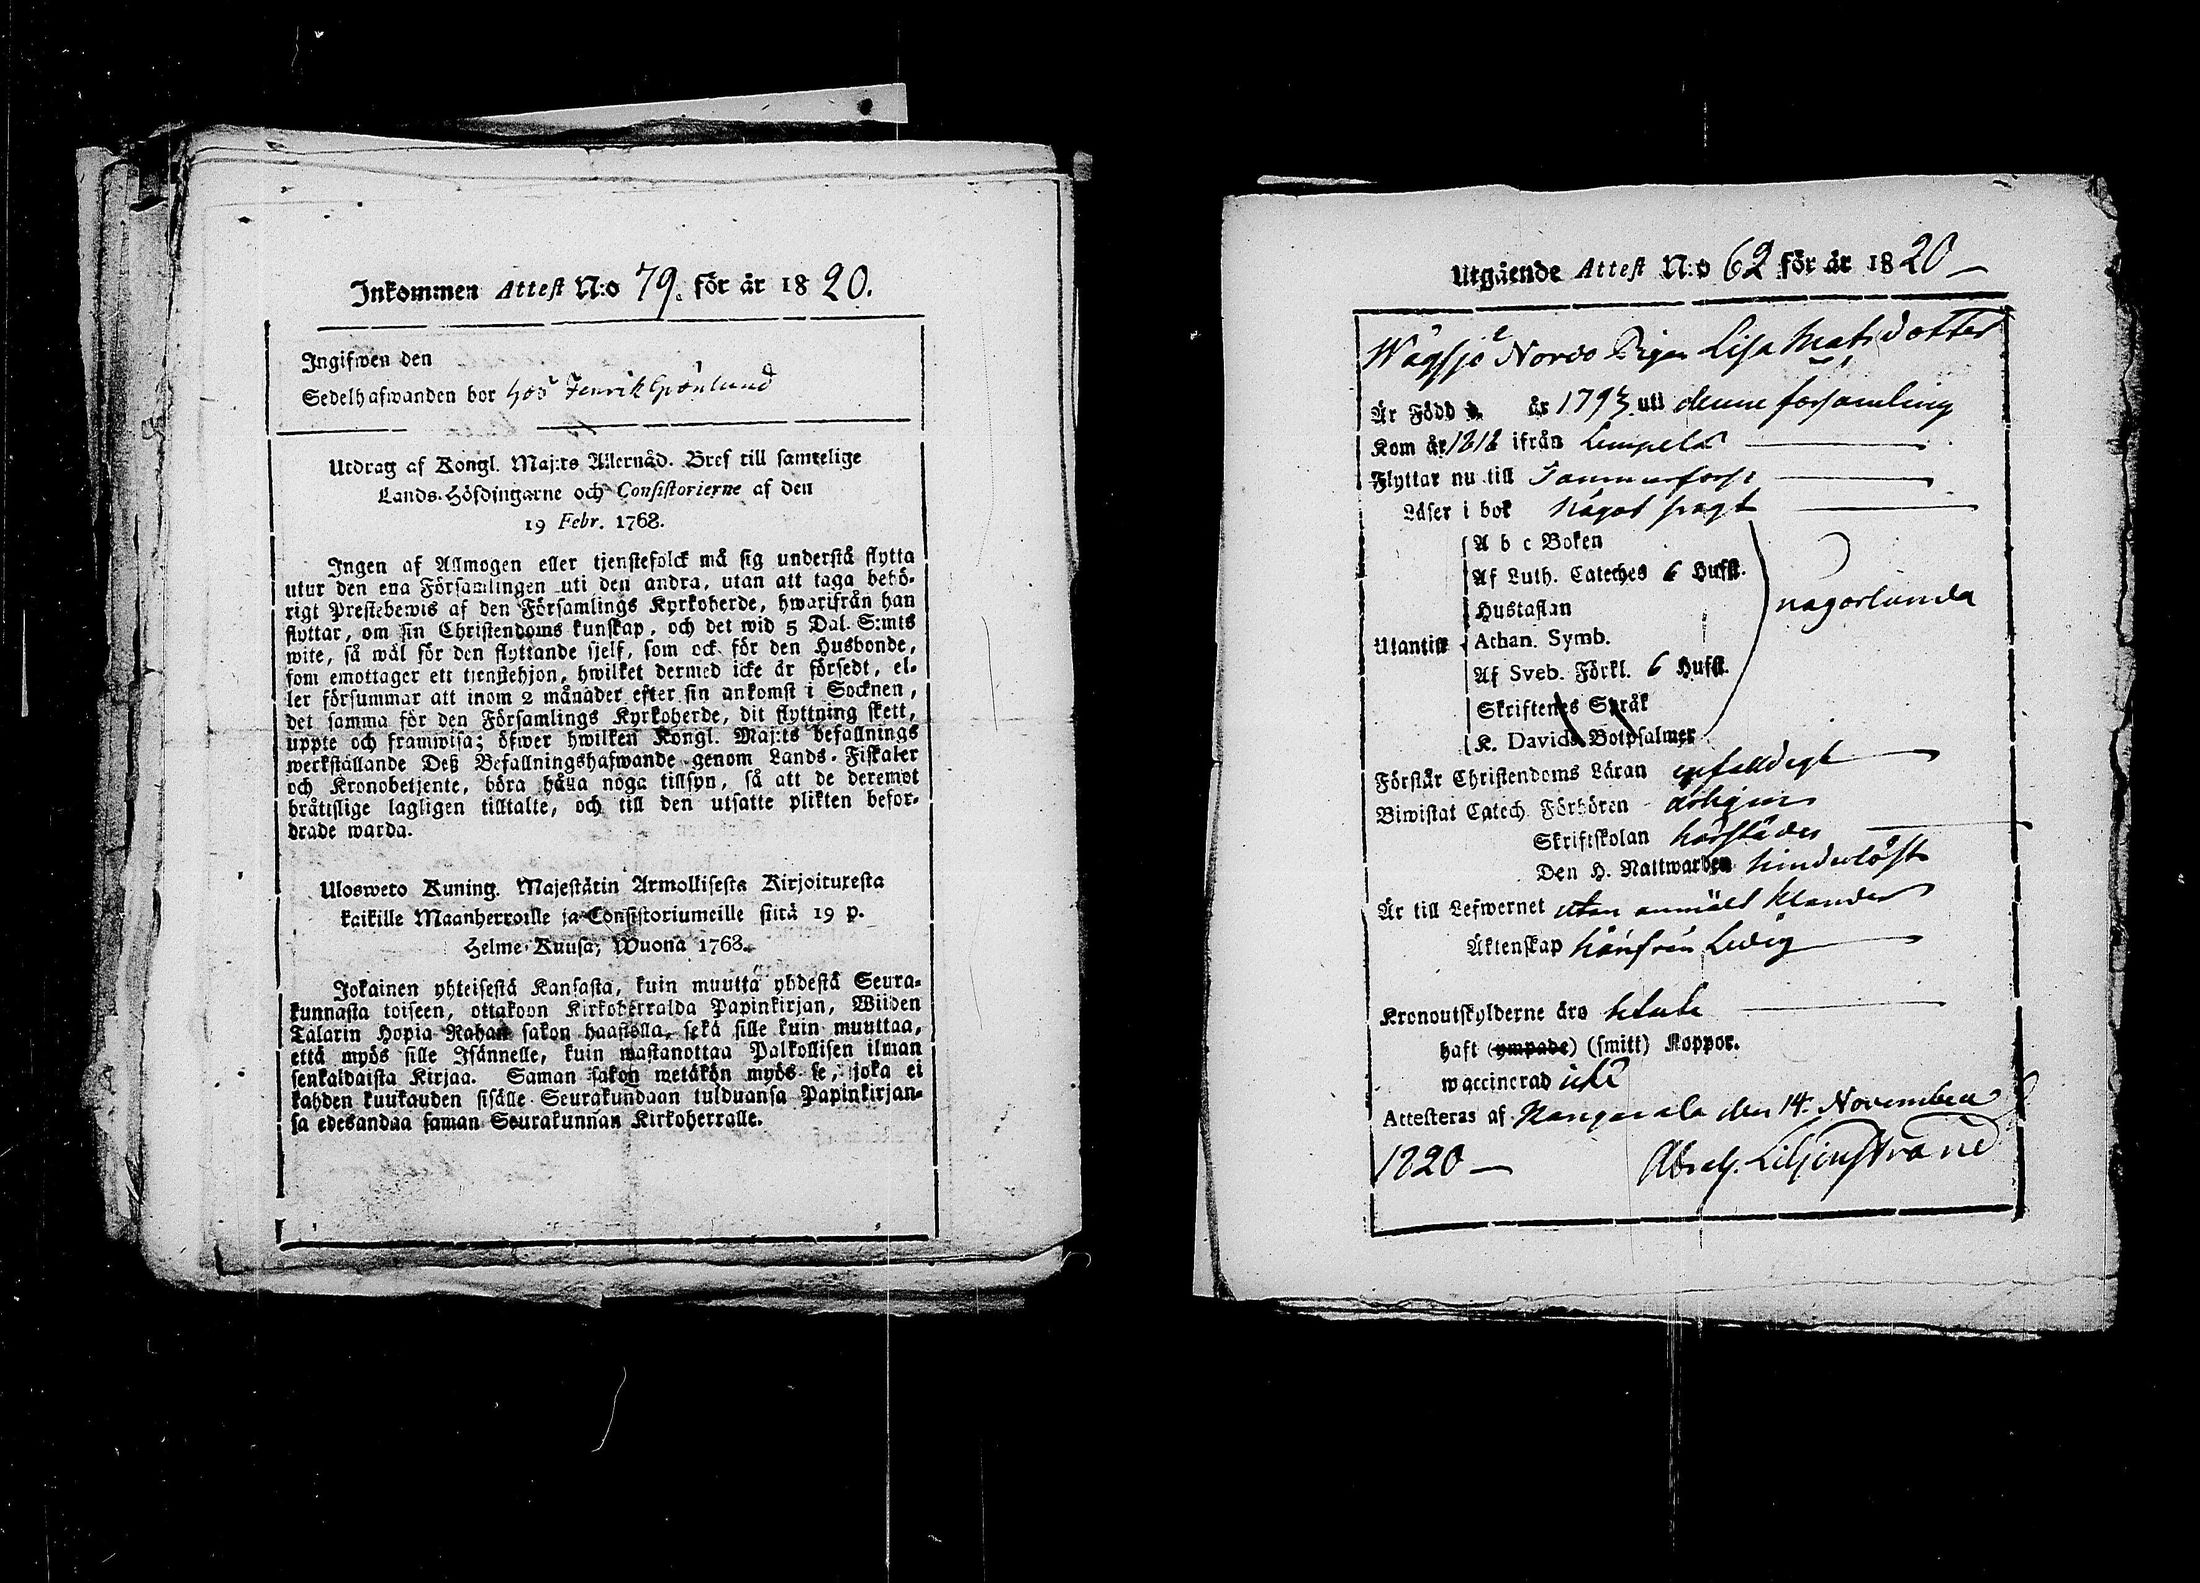 Inkommen Attest N:o 79. för år 1820.
Ingifwen den
Sedelhafwanden bor hos Henrik Grönlund
Utdrag af Kongl. Maj:ts Allernåd. Bref till samtelige
Lands-Höfdingarne och Consistorierne af den
19 Febr. 1768.
Ingen af Allmogen eller tjenstefolck må sig understå flytta
utur den ena Församlingen uti den andra, utan att taga behö-
rigt Prestebewis af den Församlings Kyrkoherde, hwarifrån han
flyttar, om sin Christendoms kunskap, och det wid 5 Dal. S:mts
wite, så wäl för den flyttande sjelf, som ock för den Husbonde,
som emottager ett tjenstehjon, hwilket dermed icke är försedt, el-
ler försummar att inom 2 månader efter sin ankomst i Socknen,
det samma för den Församlings Kyrkoherde, dit flyttning skett,
uppte och framwisa; öfwer hwilken Kongl. Maj:ts befallnings
werkställande Deß Befallningshafwande genom Lands-Fiskaler
och Kronobetjente, böra hålla noga tillsyn, så att de deremot
bråttslige lagligen tilltalte, och till den utsatte plikten befor-
drade warda.
Ulosweto Kuning. Majestätin Armollisesta Kirjoituxesta
kaikille Maanherroille ja Consistoriumeille siitä 19 p.
Helme-Kuusa, Wuona 1768.
Jokainen yhteisestä Kansasta, kuin muutta yhdestä Seura-
kunnasta toiseen, ottakoon Kirkoherralda Papinkirjan, Wiiden
Talarin Hopia Rahan sakon haastolla, sekä sille kuin muuttaa,
että myös sille Isännelle, kuin wastanottaa Palkollisen ilman
senkaldaista Kirjaa. Saman sakon wetäkön myös se, joka ei
kahden kuukauden sisälle Seurakundaan tulduansa Papinkirjan-
sa edesandaa saman Seurakunnan Kirkoherralle.
Utgående Attest N:o 62 för år 1820
Wägsjö Nordo Pigan Lisa Matsdotter
Är Född år 1793 uti denne församling
Kom år 1818 ifrån Lempelä
Flyttar nu till Tammerfors
Läser i bok något svagt
A b c Boken
Af Luth. Cateches 6 Hufst.
Hustaflan
Utantill Athan. Symb. någorlunda
Af Sveb. Förkl. 6 Hufst.
Skriftenes Språk
K. Davids Botpsalmer
Förstår Christendoms Läran enfaldigt
Biwistat Catech. Förhören årligen
Skriftskolan härstädes
Den H. Nattwarden hinderlöst
Är till Lefwernet utan anmält klander
Äktenskap härifrån Ledig
Kronoutskylderne äro betalte
haft (ympade) (smitt) Koppor.
waccinerad icke
Attesteras af Kangasala den 14 November
1820 Abrah. Liljenstrand